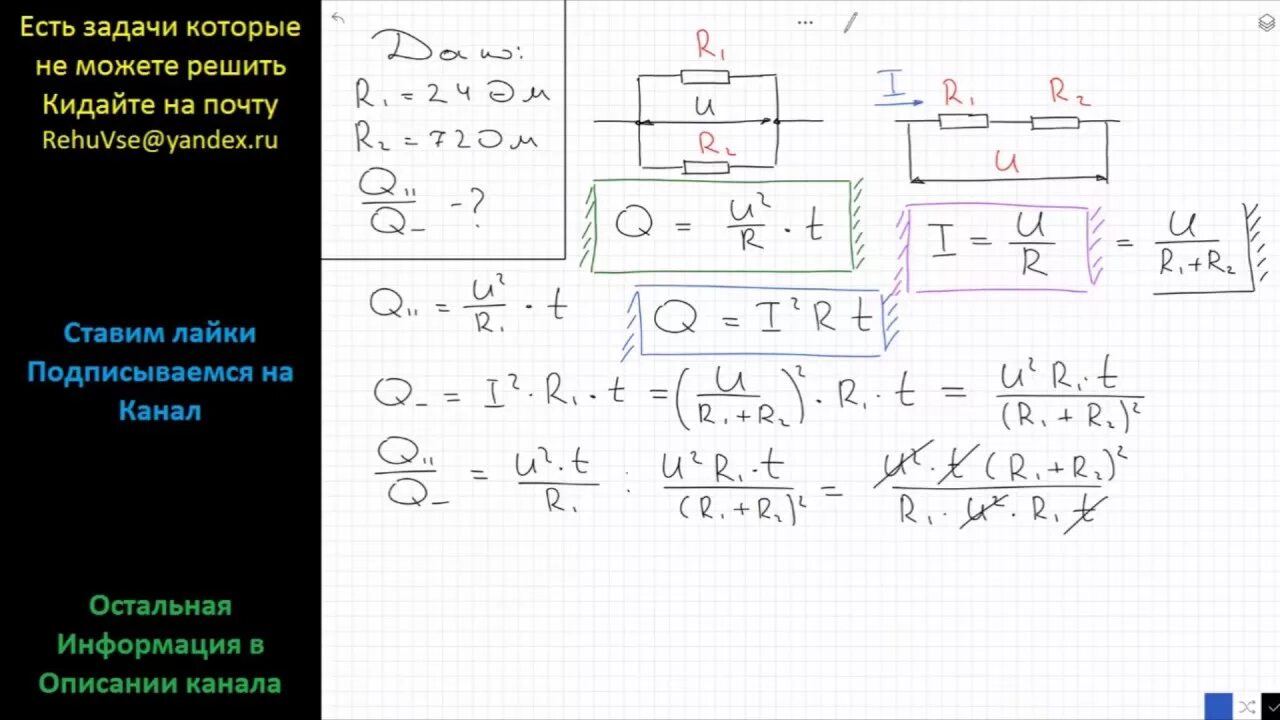 Есть задачи которые
не можете решить
Кидайте на почту
RehuVse@yandex.ru
Ставим лайки
Подписываемся на
Канал
Остальная
Информация в
Описании канала
Дано:
R₁ = 24 Ом
R₂ = 72 Ом
Q₁₁/Q₋ - ?
R₁
U
R₂
I R₁ R₂
U
Q = U²/R · t
I = U/R = U/(R₁+R₂)
Q₁₁ = U²/R₁ · t
Q = I² R t
Q₋ = I² · R₁ · t = (U/(R₁+R₂))² · R₁ · t = U² R₁ · t/(R₁ + R₂)²
Q₁₁/Q₋ = U² · t/R₁ : U² R₁ · t/(R₁+R₂)² = U² · t (R₁+R₂)²/R₁ · U² · R₁ t